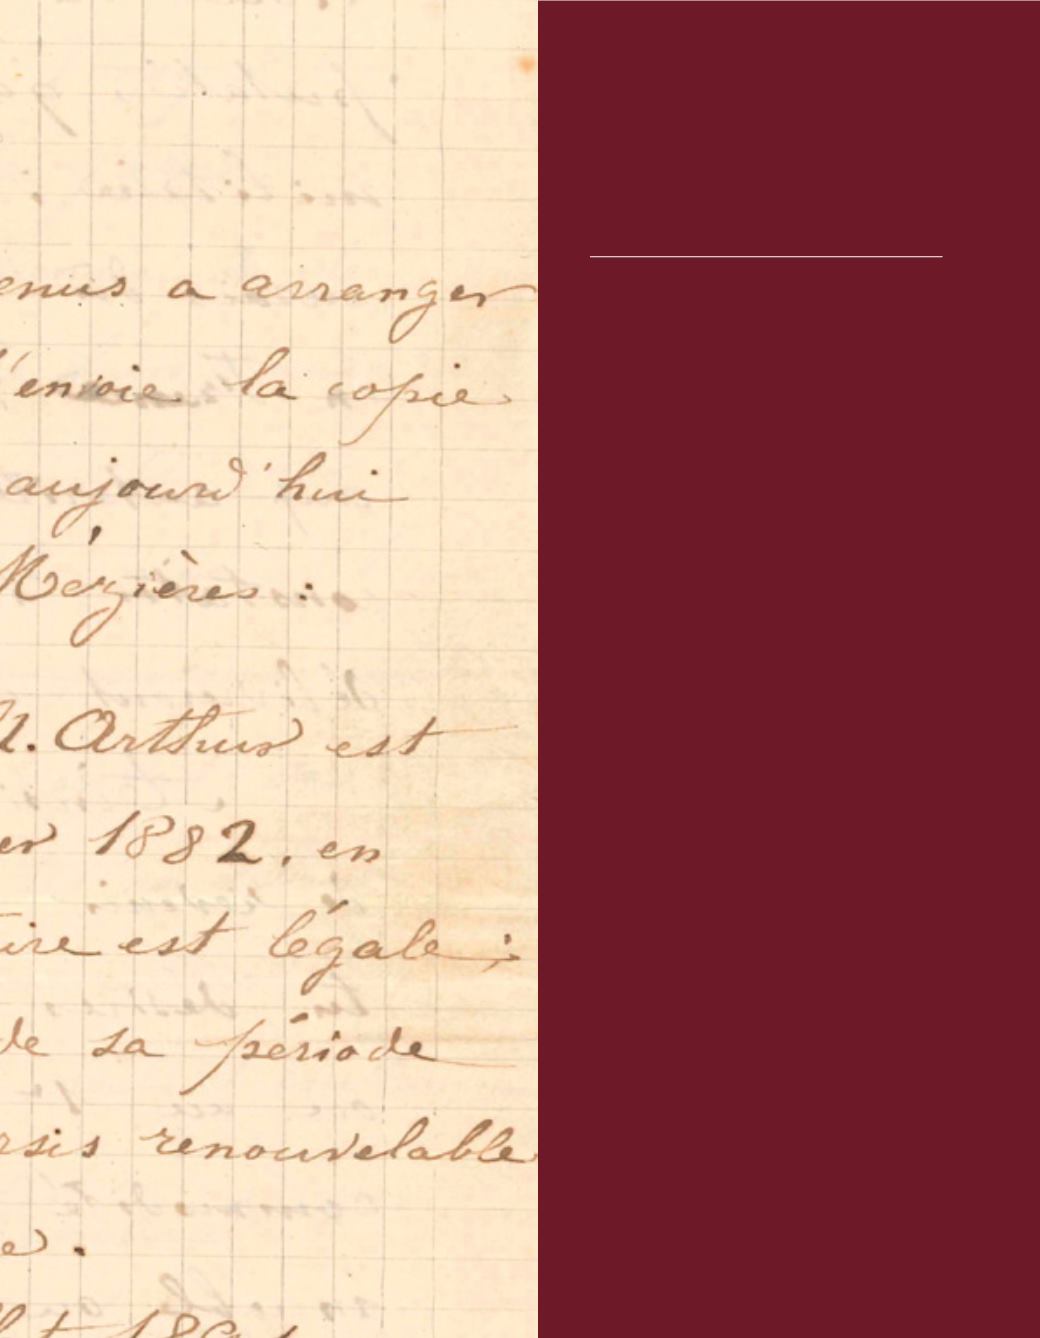 enus a arranger
l'envoie la copie
aujourd'hui
Mézières :
M. Arthur est
er 1882, en
ire est légale ;
de sa période
rsis renouvelable
e.